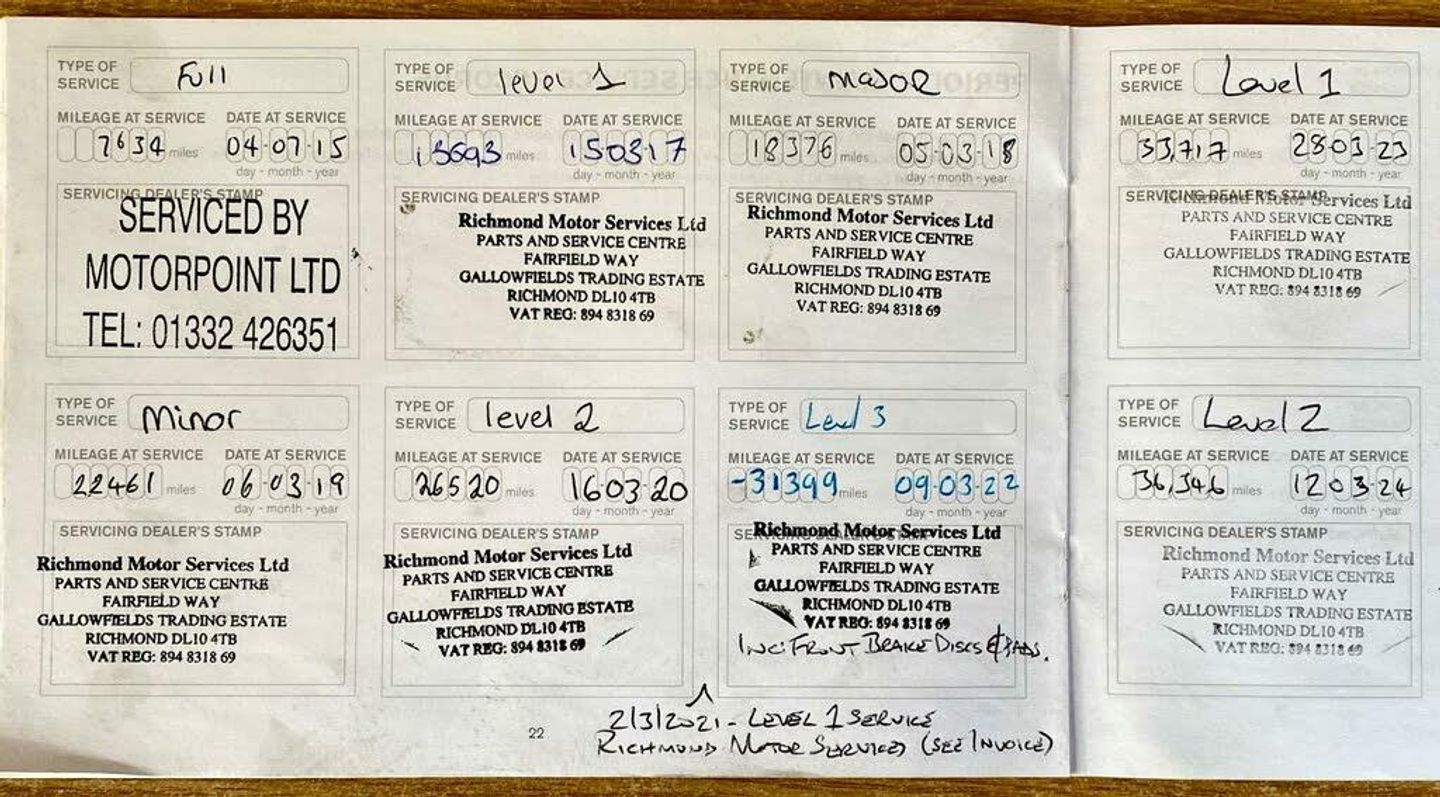 TYPE OF SERVICE Full
MILEAGE AT SERVICE DATE AT SERVICE
7634 miles 04-07-15
day - month - year
SERVICING DEALER'S STAMP
SERVICED BY
MOTORPOINT LTD
TEL: 01332 426351
TYPE OF SERVICE level 1
MILEAGE AT SERVICE DATE AT SERVICE
miles 150317
day - month - year
SERVICING DEALER'S STAMP
Richmond Motor Services Ltd
PARTS AND SERVICE CENTRE
FAIRFIELD WAY
GALLOWFIELDS TRADING ESTATE
RICHMOND DL10 4TB
VAT REG: 894 8318 69
TYPE OF SERVICE MAJOR
MILEAGE AT SERVICE DATE AT SERVICE
18376 miles 05-03-18
day - month - year
SERVICING DEALER'S STAMP
Richmond Motor Services Ltd
PARTS AND SERVICE CENTRE
FAIRFIELD WAY
GALLOWFIELDS TRADING ESTATE
RICHMOND DL10 4TB
VAT REG: 894 8318 69
TYPE OF SERVICE Level 1
MILEAGE AT SERVICE DATE AT SERVICE
33,717 miles 28-03-23
day - month - year
SERVICING DEALER'S STAMP
Richmond Motor Services Ltd
PARTS AND SERVICE CENTRE
FAIRFIELD WAY
GALLOWFIELDS TRADING ESTATE
RICHMOND DL10 4TB
VAT REG: 894 8318 69
TYPE OF SERVICE Minor
MILEAGE AT SERVICE DATE AT SERVICE
22461 miles 06-03-19
day - month - year
SERVICING DEALER'S STAMP
Richmond Motor Services Ltd
PARTS AND SERVICE CENTRE
FAIRFIELD WAY
GALLOWFIELDS TRADING ESTATE
RICHMOND DL10 4TB
VAT REG: 894 8318 69
TYPE OF SERVICE level 2
MILEAGE AT SERVICE DATE AT SERVICE
26520 miles 160320
day - month - year
SERVICING DEALER'S STAMP
Richmond Motor Services Ltd
PARTS AND SERVICE CENTRE
FAIRFIELD WAY
GALLOWFIELDS TRADING ESTATE
RICHMOND DL10 4TB
VAT REG: 894 8318 69
TYPE OF SERVICE Level 3
MILEAGE AT SERVICE DATE AT SERVICE
-31399 miles 09-03-22
day - month - year
SERVICING DEALER'S STAMP
Richmond Motor Services Ltd
PARTS AND SERVICE CENTRE
FAIRFIELD WAY
GALLOWFIELDS TRADING ESTATE
RICHMOND DL10 4TB
VAT REG: 894 8318 69
INC: FRONT BRAKE DISCS & PADS.
TYPE OF SERVICE Level 2
MILEAGE AT SERVICE DATE AT SERVICE
36,346 miles 12-03-24
day - month - year
SERVICING DEALER'S STAMP
Richmond Motor Services Ltd
PARTS AND SERVICE CENTRE
FAIRFIELD WAY
GALLOWFIELDS TRADING ESTATE
RICHMOND DL10 4TB
VAT REG: 894 8318 69
22
2/3/2021 - LEVEL 1 SERVICE
RICHMOND MOTOR SERVICES (SEE INVOICE)